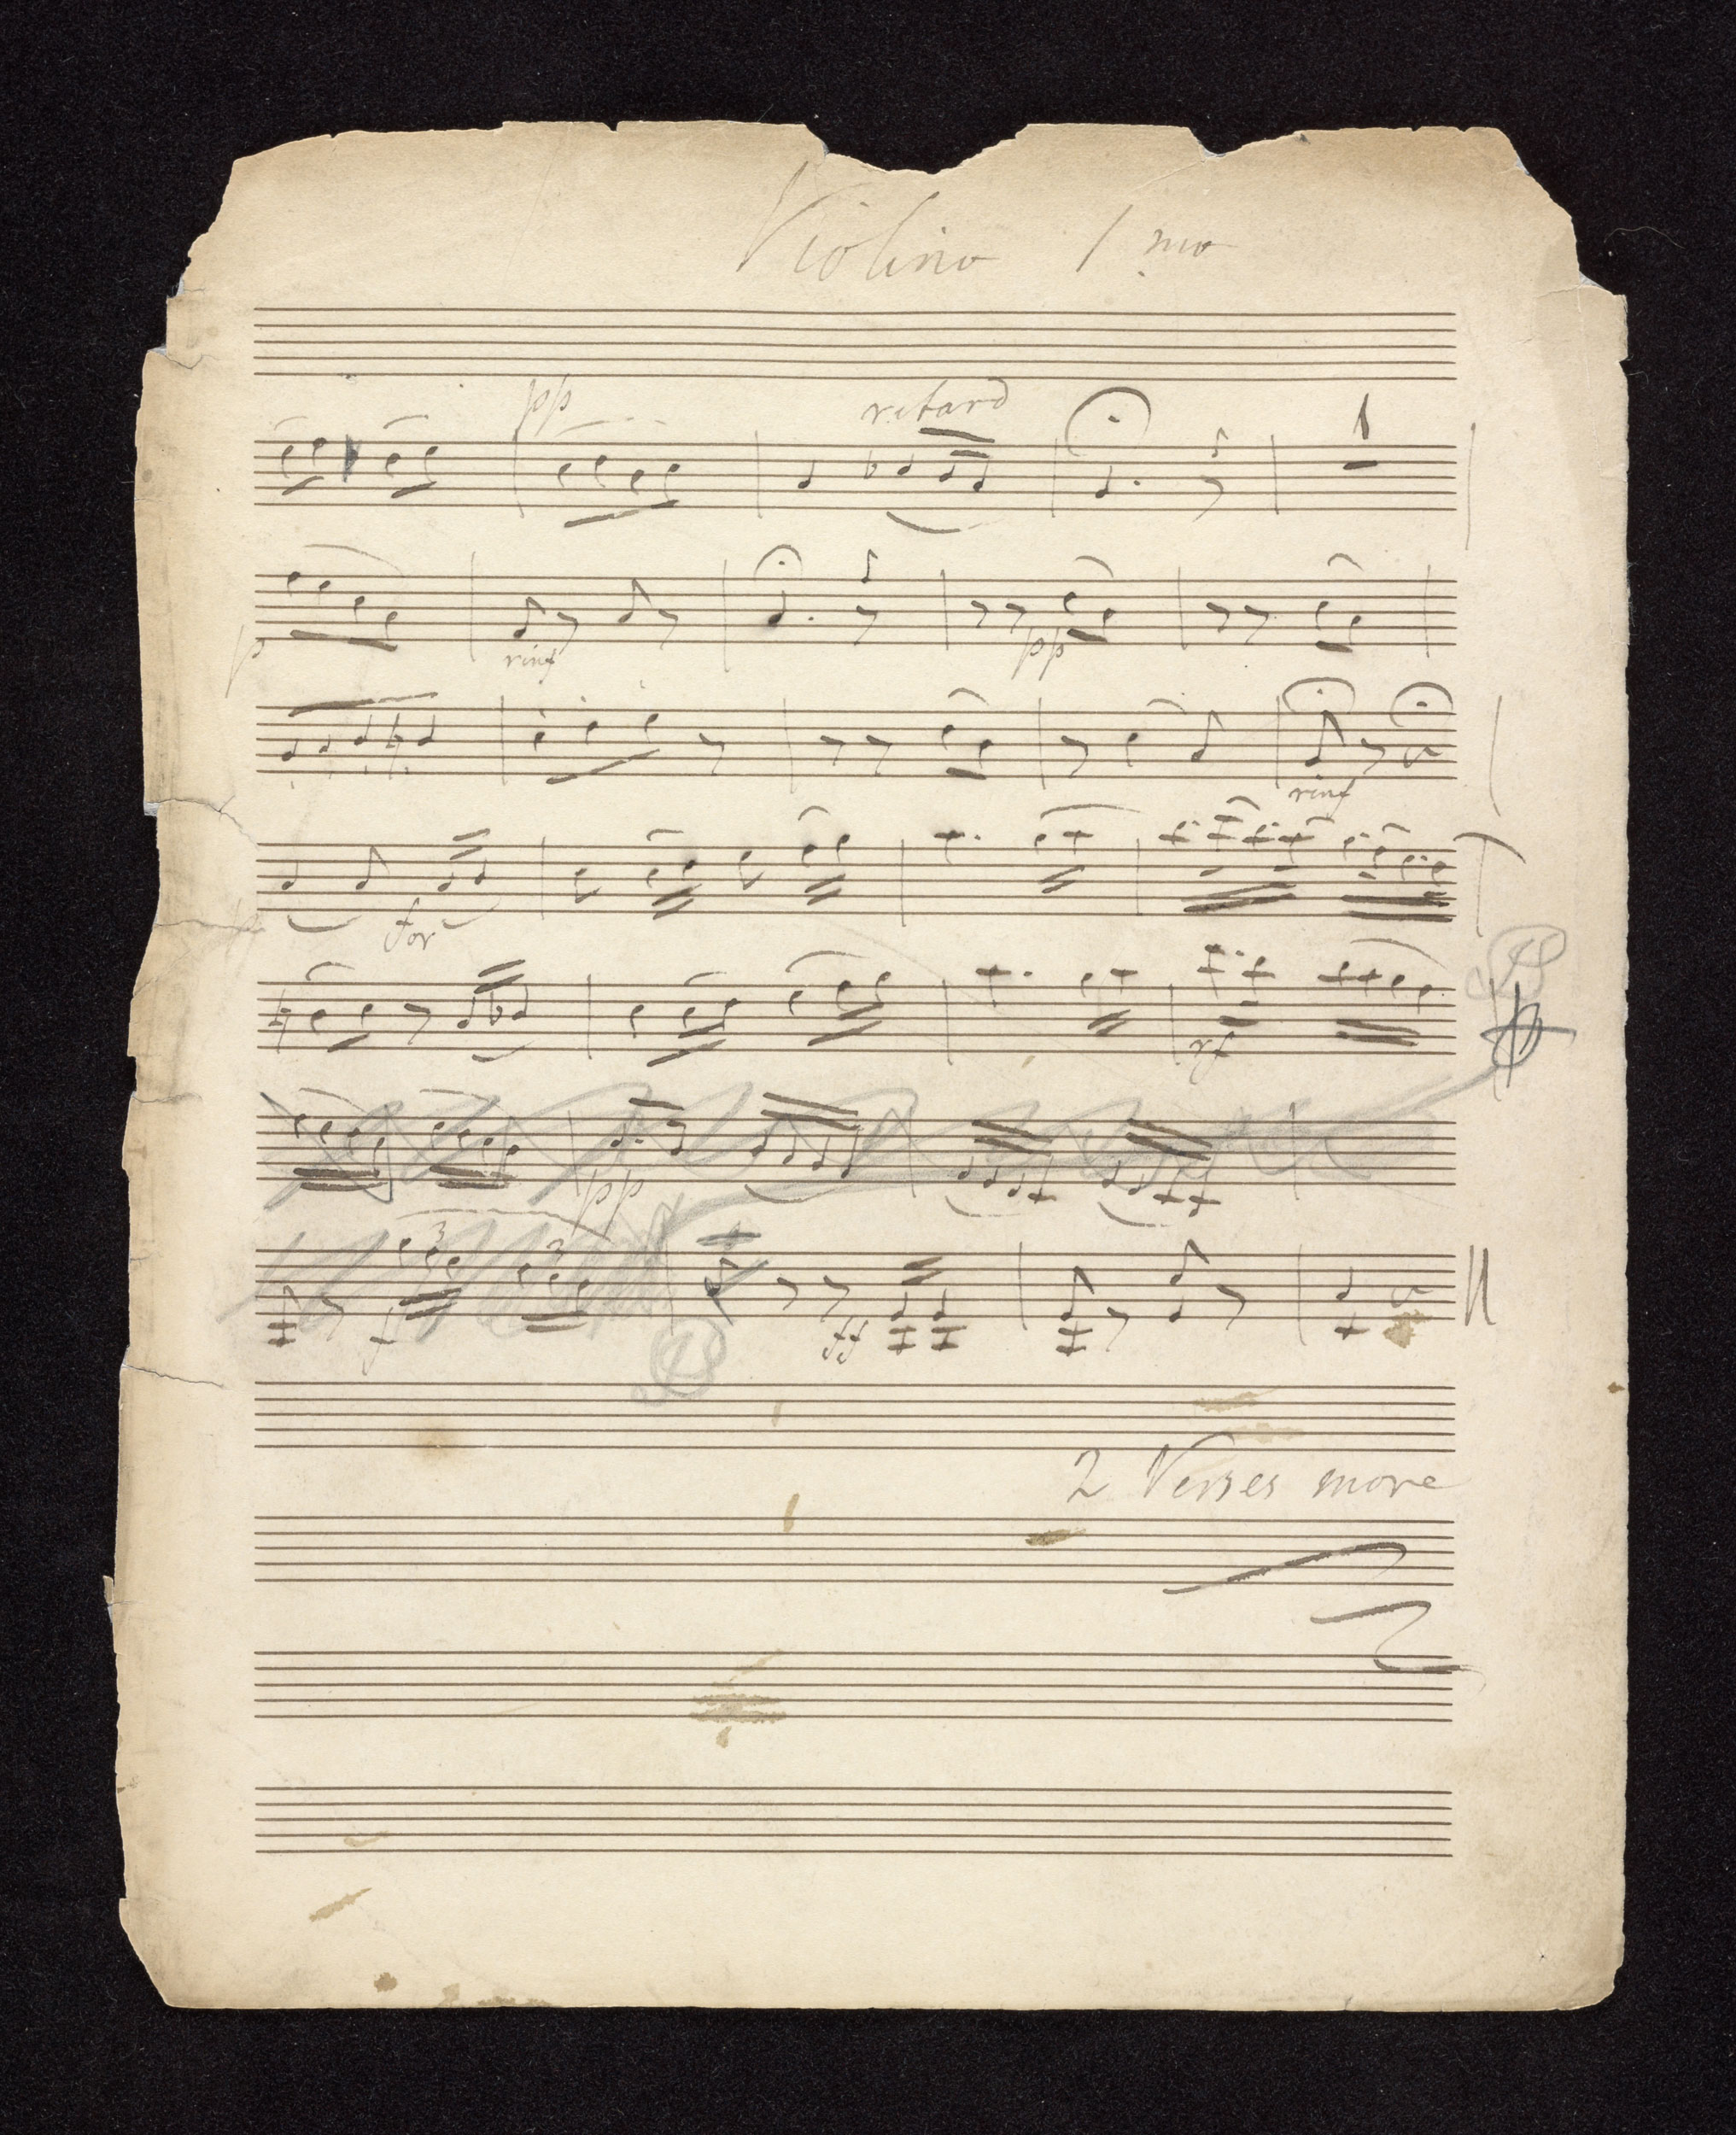 Violino 1mo
pp retard
p rinf pp
rinf
for
rf
pp
3 3
f ff
2 Verses more